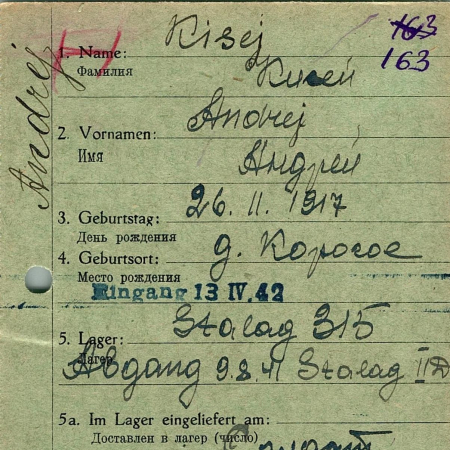 163
Kisej
163
1. Name:
Фамилия
Кисей
Andrej
Andrej
2. Vornamen:
Имя
Андрей
3. Geburtstag: 26. 11. 1917
День рождения
4. Geburtsort: д. Корогое
Место рождения
Eingang 13 IV. 42
5. Lager: Stalag 315
Лагер
Abgang 9.8.41 Stalag II D
5a. Im Lager eingeliefert am:
Доставлен в лагер (число)